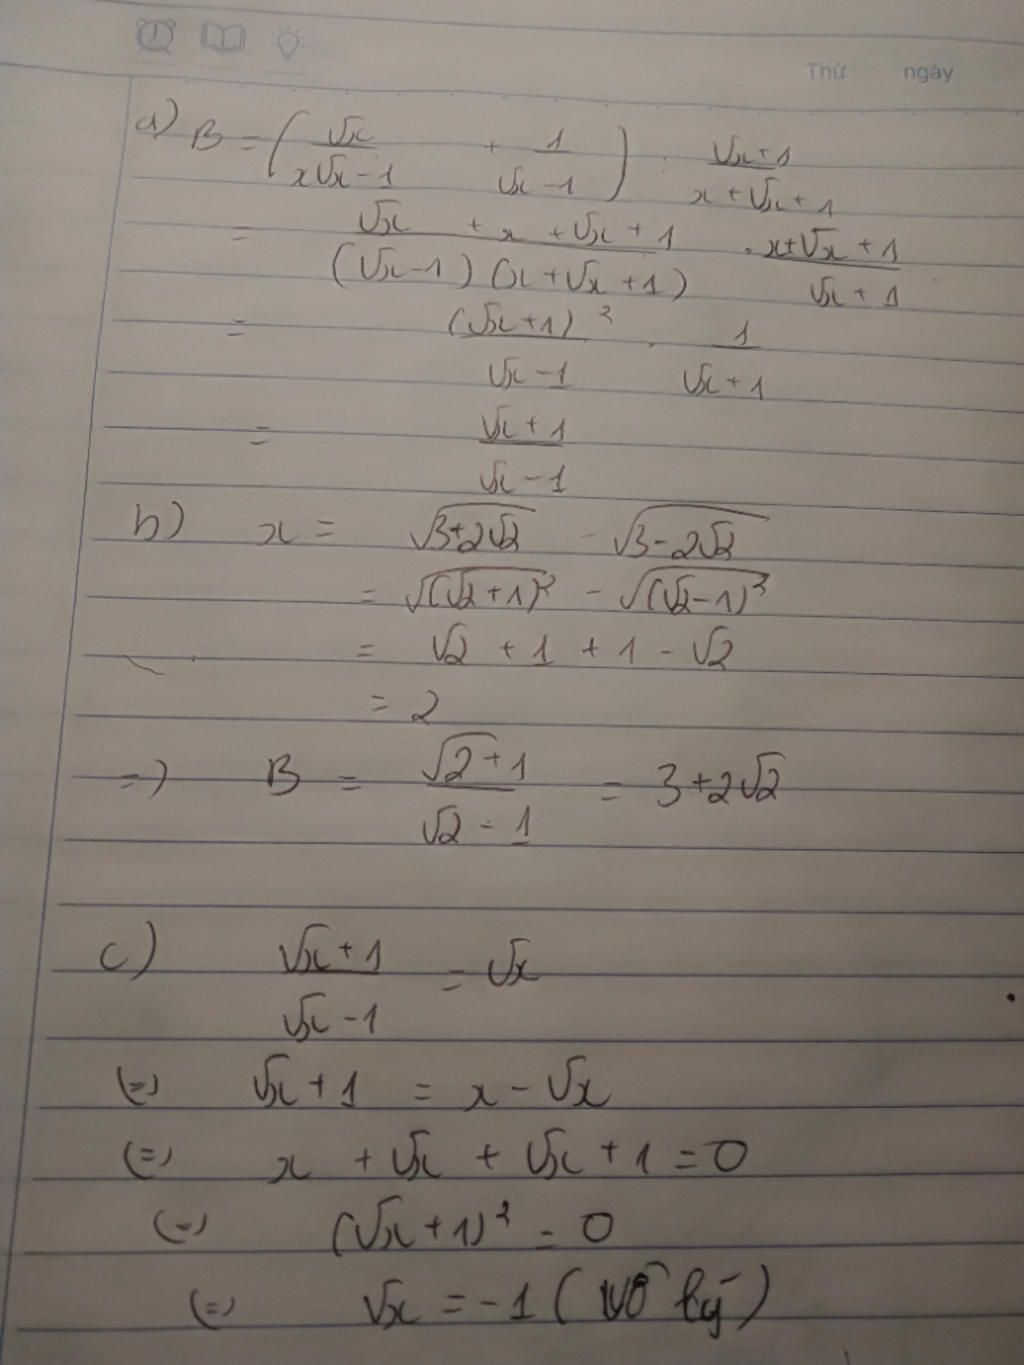 Thứ ngày
a) B = (√x / (x√x - 1) + 1 / (√x - 1)) : (√x + 1) / (x + √x + 1)
= (√x + x + √x + 1) / ((√x - 1)(x + √x + 1)) . (x + √x + 1) / (√x + 1)
= (√x + 1)² / (√x - 1) . 1 / (√x + 1)
= (√x + 1) / (√x - 1)
b) x = √(3+2√2) - √(3-2√2)
= √((√2+1)²) - √((√2-1)²)
= √2 + 1 + 1 - √2
= 2
=> B = (√2 + 1) / (√2 - 1) = 3 + 2√2
c) (√x + 1) / (√x - 1) = √x
(=) √x + 1 = x - √x
(=) x + √x + √x + 1 = 0
(=) (√x + 1)² = 0
(=) √x = -1 (vô lý)